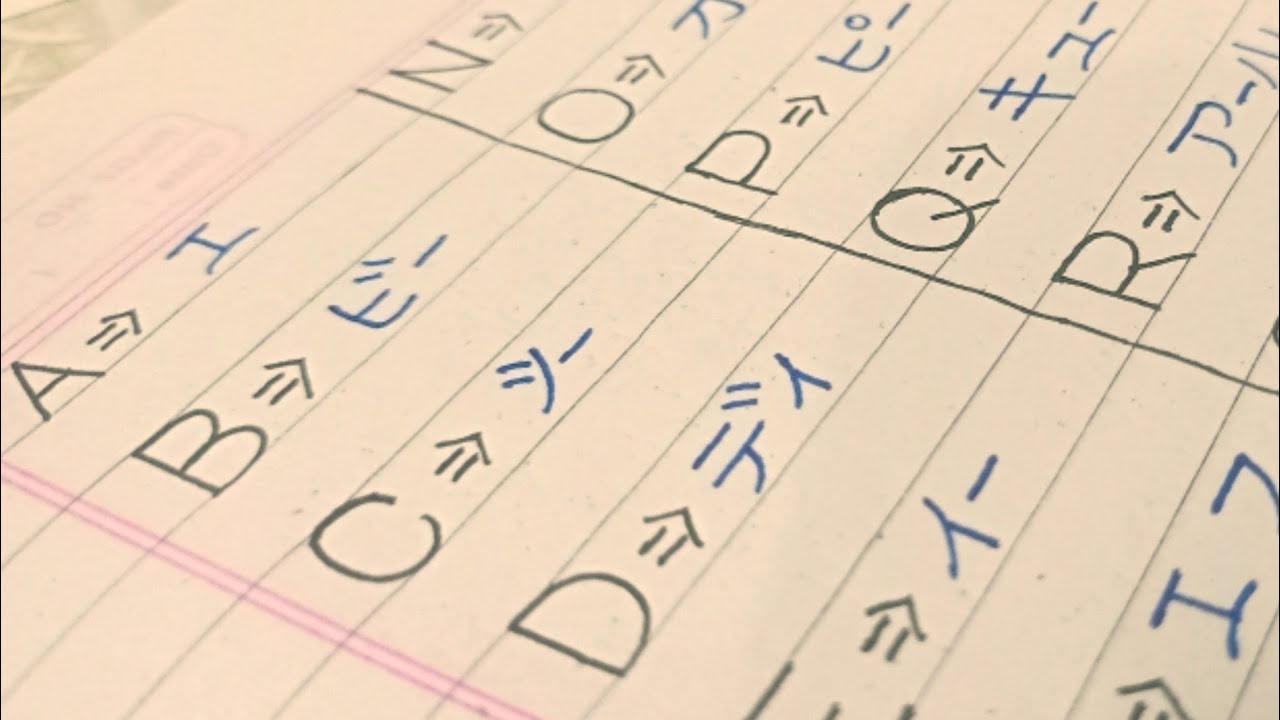 A⇒エ
B⇒ビー
C⇒シー
D⇒ディ
⇒イー
⇒エフ
N⇒
O⇒オ
P⇒ピー
Q⇒キュー
R⇒アール